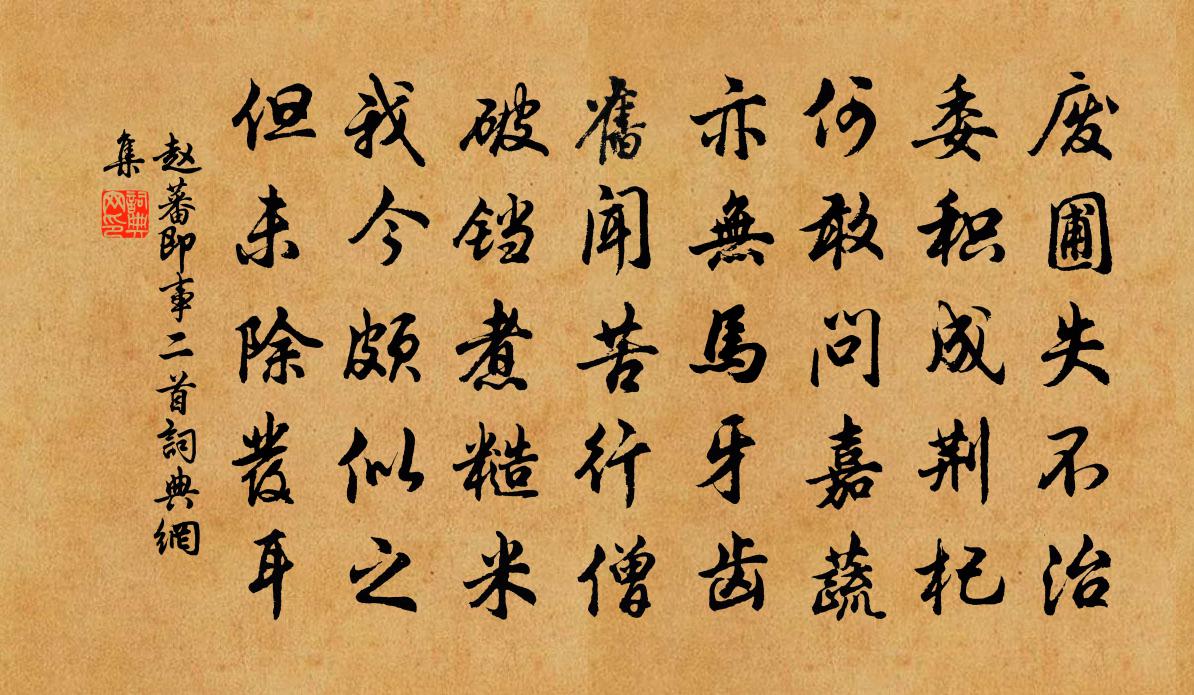 废圃失不治
委积成荆杞
何敢问嘉蔬
亦無馬牙齿
舊闻苦行僧
破铛煮糙米
我今颇似之
但未除發耳
赵蕃即事二首詞典網
集
詞典网印